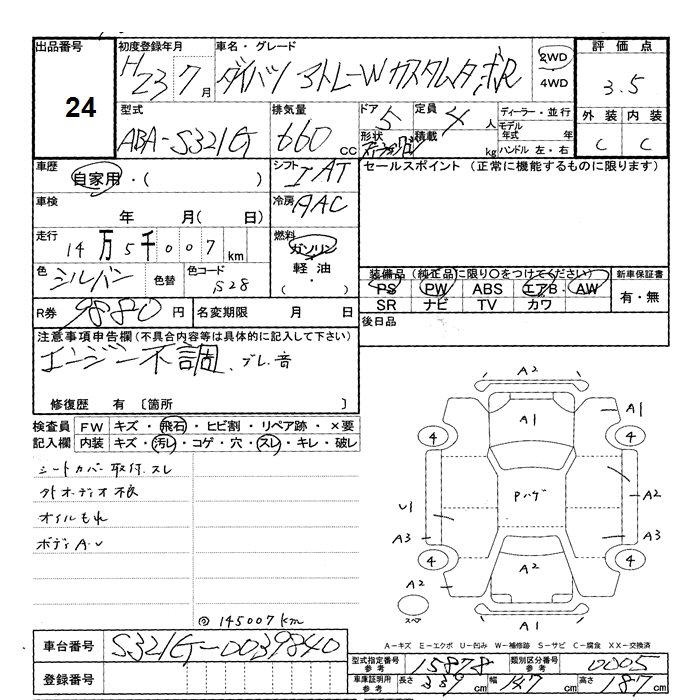 出品番号 24
初度登録年月 H23 7月
車名・グレード ダイハツ アトレーW カスタムターボR
2WD 4WD
評価点 3.5
外装 内装
C C
型式 ABA-S321G
排気量 660 CC
ドア 5
形状
定員 4人
積載 kg
ディーラー・並行
モデル年式 年
ハンドル 左・右
車歴 自家用・( )
シフト IAT
セールスポイント (正常に機能するものに限ります)
車検 年 月( 日)
冷房 AAC
走行 14万5千007km
燃料 ガソリン 軽油 ( ・ )
色 シルバー 色替 色コード S28
装備品(純正品に限り○をつけてください) 新車保証書
PS PW ABS エアB・ AW 有・無
SR ナビ TV カワ
R券 9880円 名変期限 月 日
後日品
注意事項申告欄(不具合内容等は具体的に記入して下さい)
エンジン不調、ブレ、音
修復歴 有 〔箇所 〕
検査員記入欄
FW キズ・飛石・ヒビ割・リペア跡・×要
内装 キズ・汚レ・コゲ・穴・スレ・キレ・破レ
シートカバー取付、スレ
外オーディオ不良
オイルもれ
ボディA・U
◎145007km
A2
A1 A1
4 4
Pハゲ A2
U1
A3 A3
4 4
A2 A2
スペア
A1
A-キズ E-エクボ U-凹み W-補修跡 S-サビ C-腐食 XX-交換済
車台番号 S321G-0039840
登録番号
型式指定番号 参考 15878 類別区分番号 参考 0005
車庫証明用 参考 長さ 339cm 幅 147cm 高さ 187cm